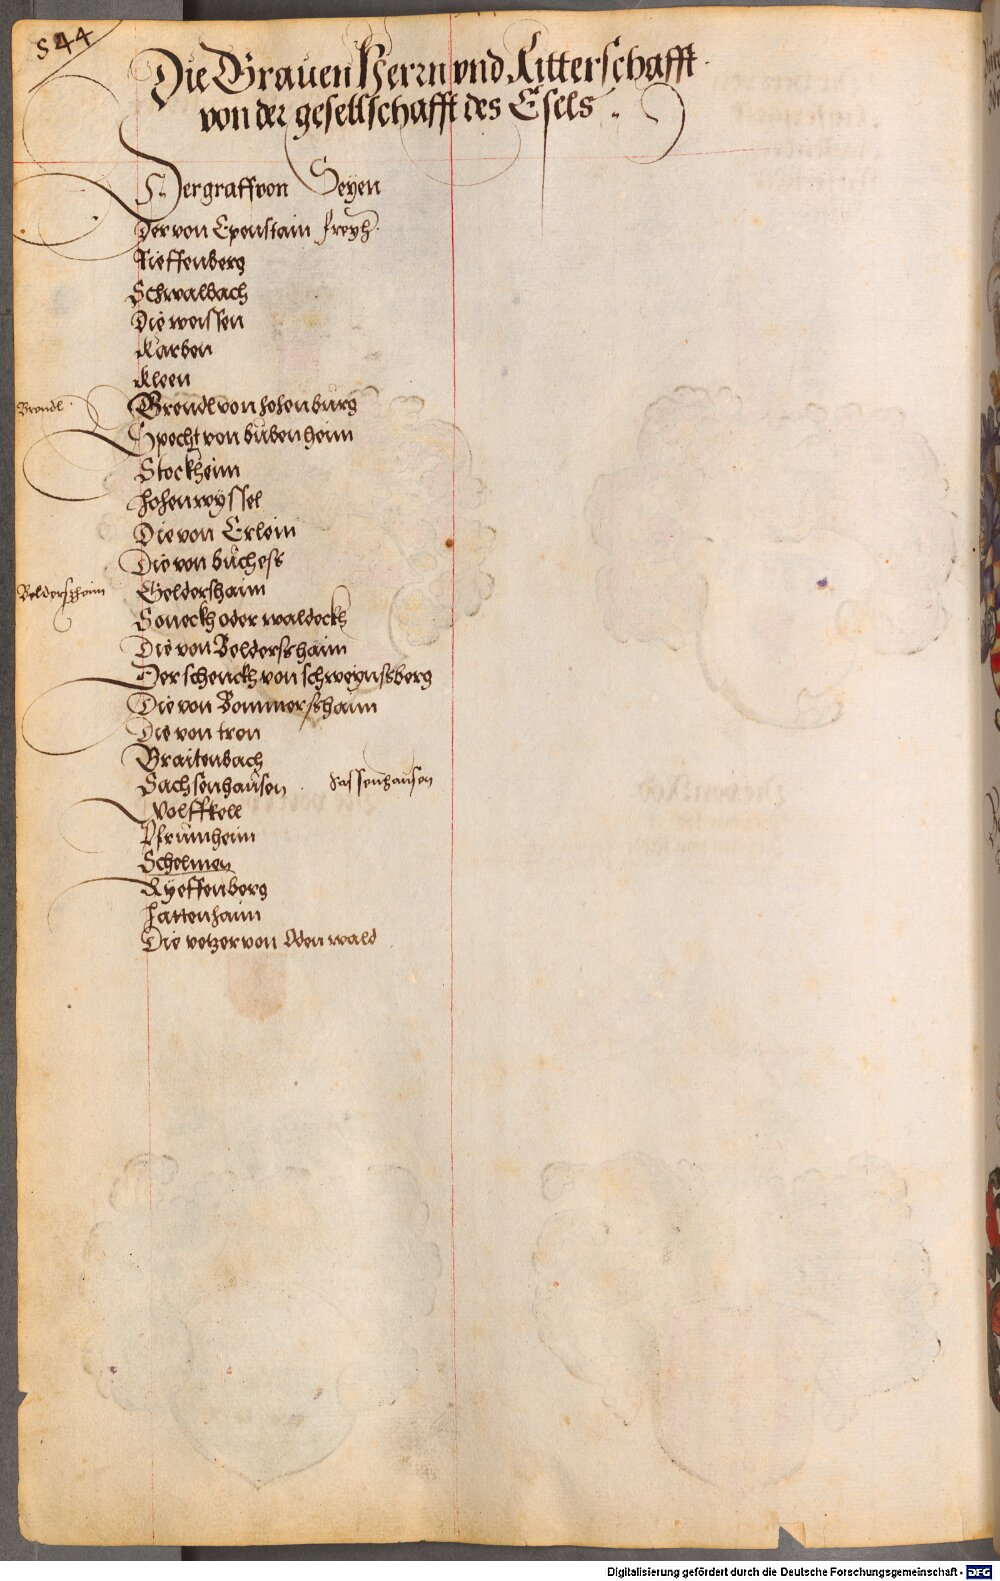 544
Die Grauen Herrn vnd Ritterschafft
von der gesellschafft des Esels.
Der graff von Seyen
Der von Epenstain freyh.
Rieffenberg
Schwalbach
Die weissen
Karben
Kleen
Brendl
Brendl von hohenburg
Specht von bubenheim
Stockheim
hohenwyssel
Die von Erlein
Die von buchess
Beldersheim
Geldershaim
Soneckh oder waldeckh
Die von Beldersshaim
Der schenckh von schweynssberg
Die von Bommersshaim
Die von tron
Braitenbach
Sachsenhausen . sassenhausen
Wolffkell
Pfrumheim
Schelmen
Ryeffenberg
hattenhaim
Die vetzer von Odenwald
Digitalisierung gefördert durch die Deutsche Forschungsgemeinschaft - DFG